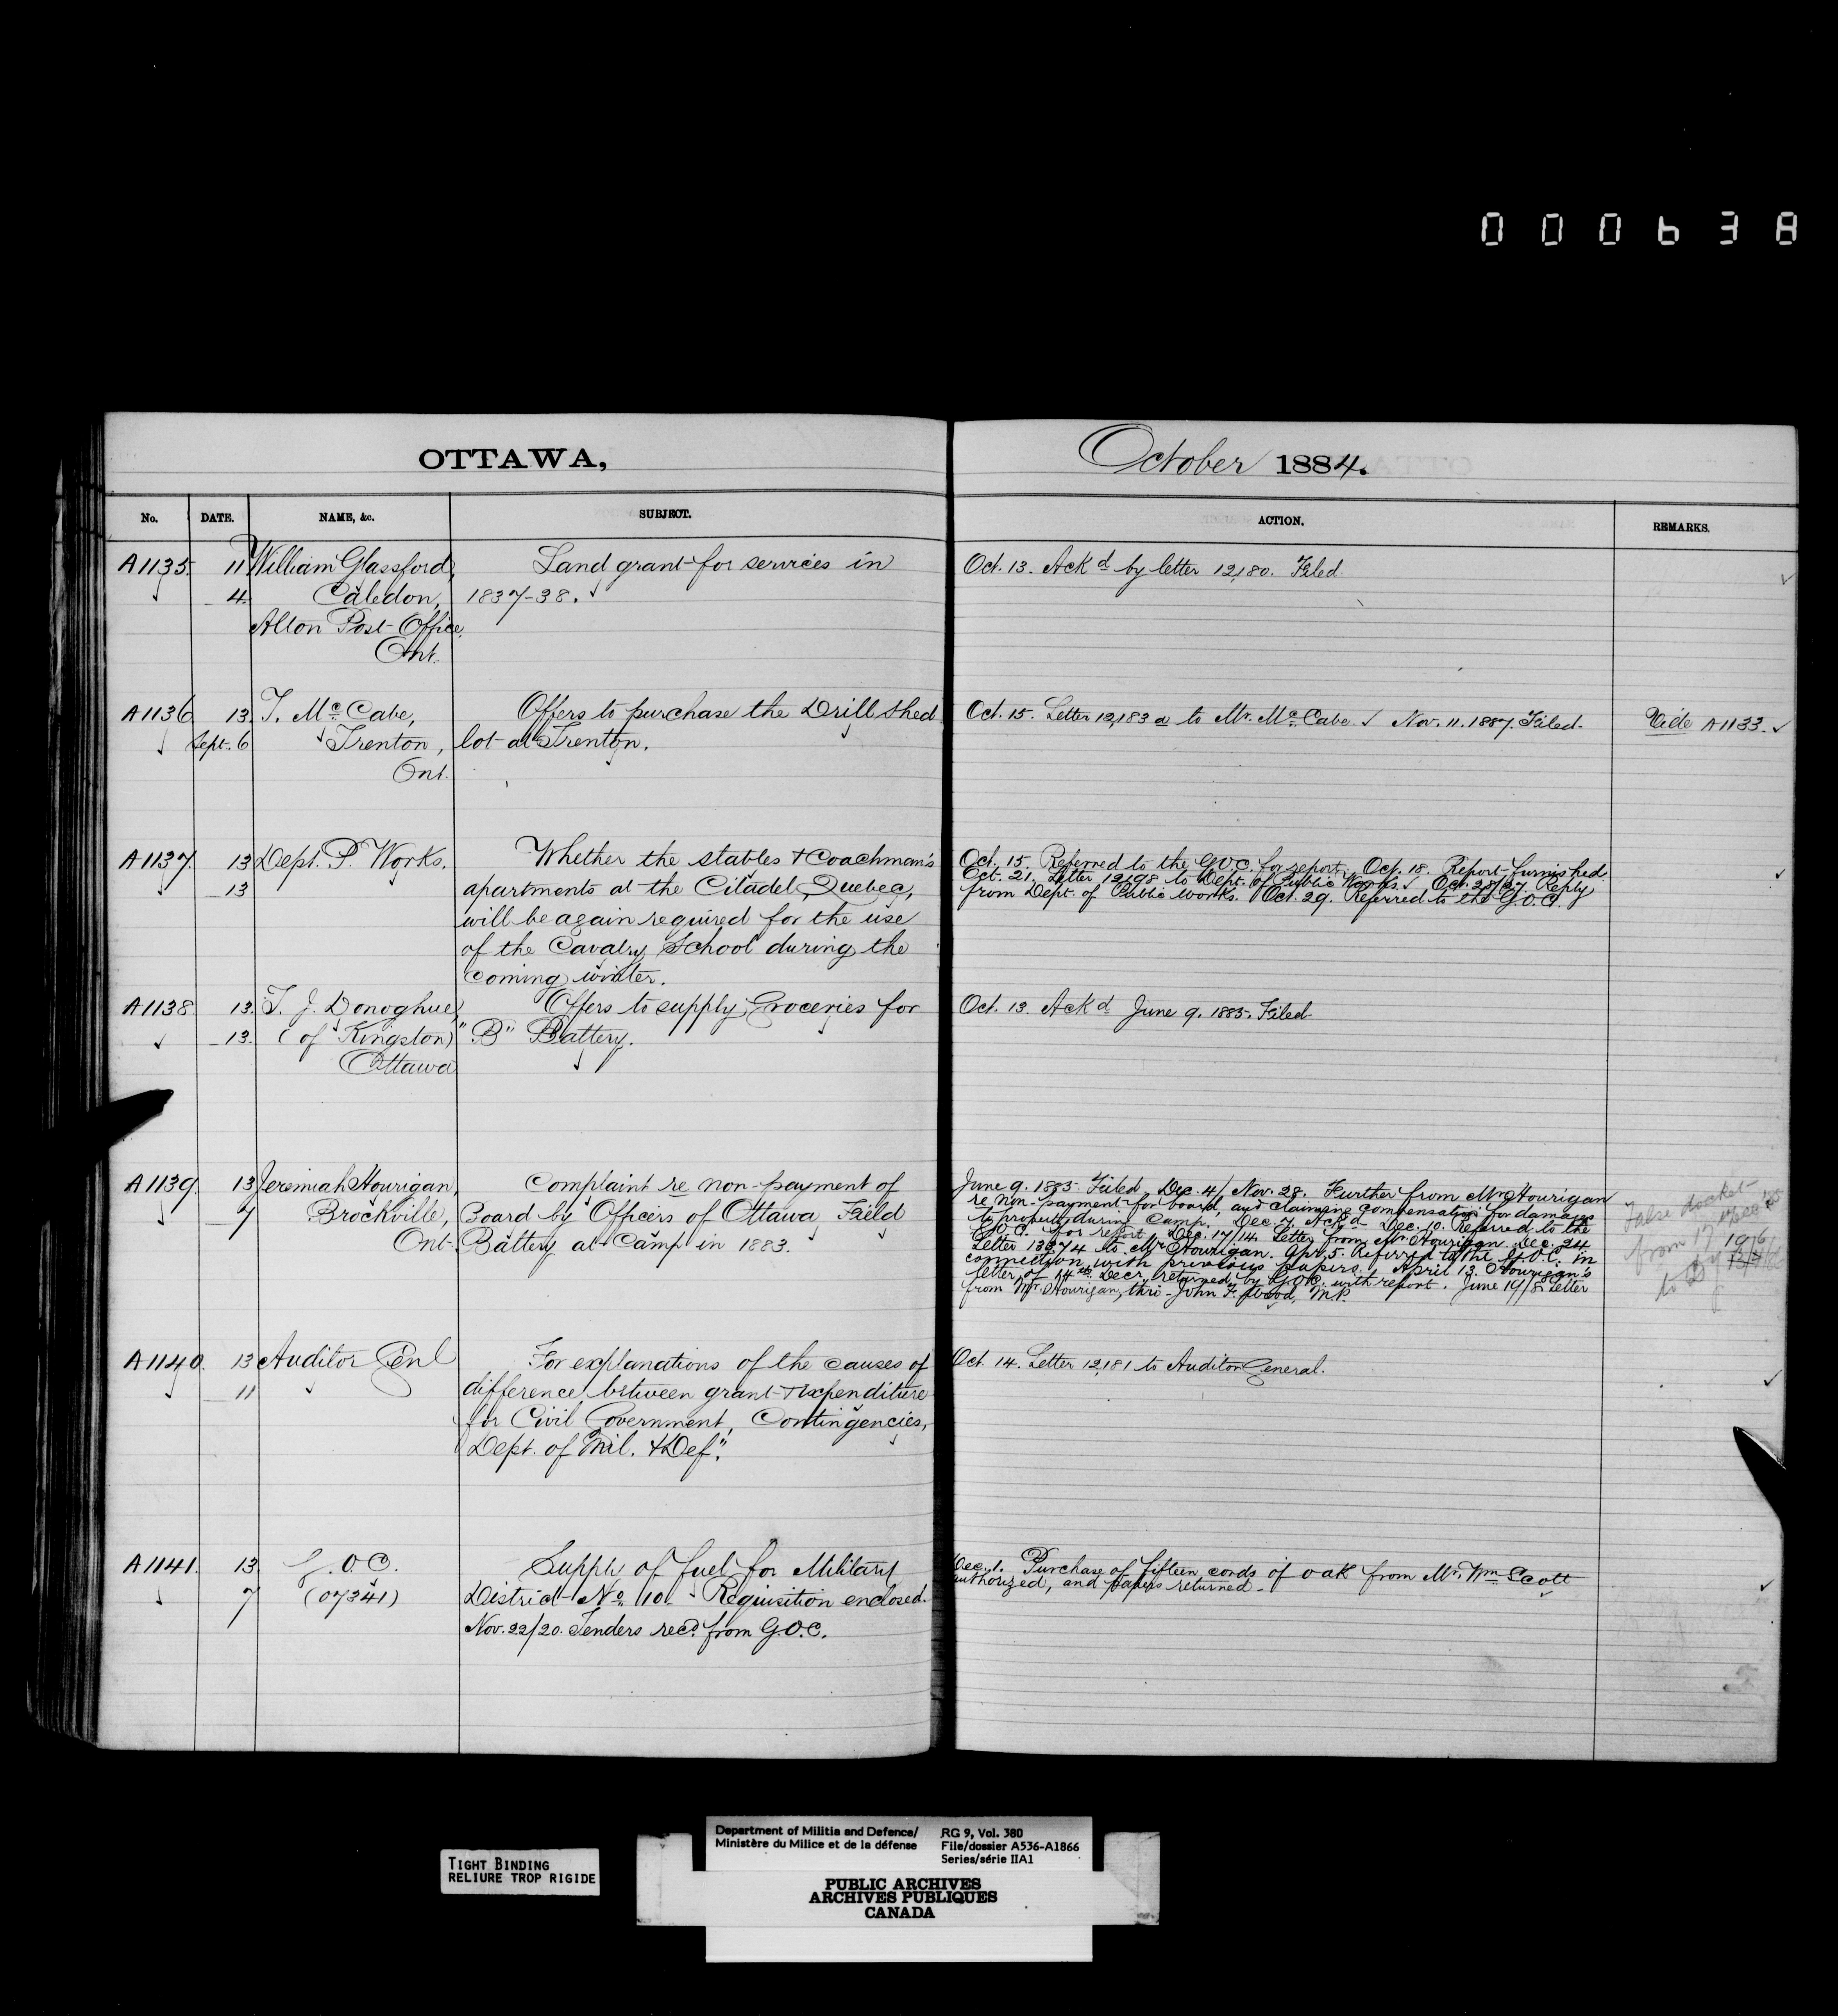 000638
OTTAWA,
October 1884.
No. DATE. NAME, &c. SUBJECT. ACTION. REMARKS.
A1135. 11 William Glassford, Land grant for services in
4. Caledon, 1837-38.
Alton Post-Office,
Ont.
Oct. 13. Ack'd by letter 12,180. Filed
A1136 13. T. McCabe, Offers to purchase the Drill Shed
Sept. 6 Trenton, lot at Trenton.
Ont.
Oct. 15. Letter 12,183 a to Mr. McCabe. Nov. 11. 1887. Filed.
Vide A1133.
A1137. 13 Dept. P. Works. Whether the stables & Coachman's
13 apartments at the Citadel, Quebec,
will be again required for the use
of the Cavalry School during the
coming winter.
Oct. 15. Referred to the G.O.C. for report. Oct. 18. Report furnished.
Oct. 21. Letter 12,198 to Dept. of Public Works. Oct. 28/27 Reply
from Dept. of Public Works. Oct. 29. Referred to the G.O.C.
A1138 13. T. J. Donoghue, Offers to supply Groceries for
13. (of Kingston) "B" Battery.
Ottawa
Oct. 13. Ack'd June 9. 1885. Filed.
A1139. 13 Jeremiah Hourigan, Complaint re non-payment of
7 Brockville, Board by Officers of Ottawa Field
Ont. Battery at Camp in 1883.
June 9. 1885. Filed. Dec. 4/Nov. 28. Further from Mr. Hourigan
re non-payment for board, and claiming compensation for damages
to property during Camp. Dec. 7. Ack'd Dec. 10. Referred to the
G.O.C. for report. Dec. 17/14. Letter from Mr. Hourigan. Dec. 24
Letter 13874 to Mr. Hourigan. Apr. 5. Referred to the G.O.C. in
connection with previous papers. April 13. Hourigan's
letter of 14th Decr. returned by G.O.C. with report. June 19/8 Letter
from Mr. Hourigan, thro- John F. Wood, M.P.
False docket
from 17
to
A1140. 13 Auditor Genl For explanations of the causes of
11 difference between grant & expenditure
for Civil Government, Contingencies,
Dept. of Mil. & Def".
Oct. 14. Letter 12,181 to Auditor General.
A1141. 13 G.O.C. Supply of fuel for Military
7 (07341) District No 10. Requisition enclosed.
Nov. 22/20. Tenders recd. from G.O.C.
Dec. 1. Purchase of fifteen cords of oak from Mr. Wm Scott
authorized, and papers returned.
TIGHT BINDING
RELIURE TROP RIGIDE
Department of Militia and Defence/
Ministère du Milice et de la défense
RG 9, Vol. 380
File/dossier A536-A1866
Series/série IIA1
PUBLIC ARCHIVES
ARCHIVES PUBLIQUES
CANADA